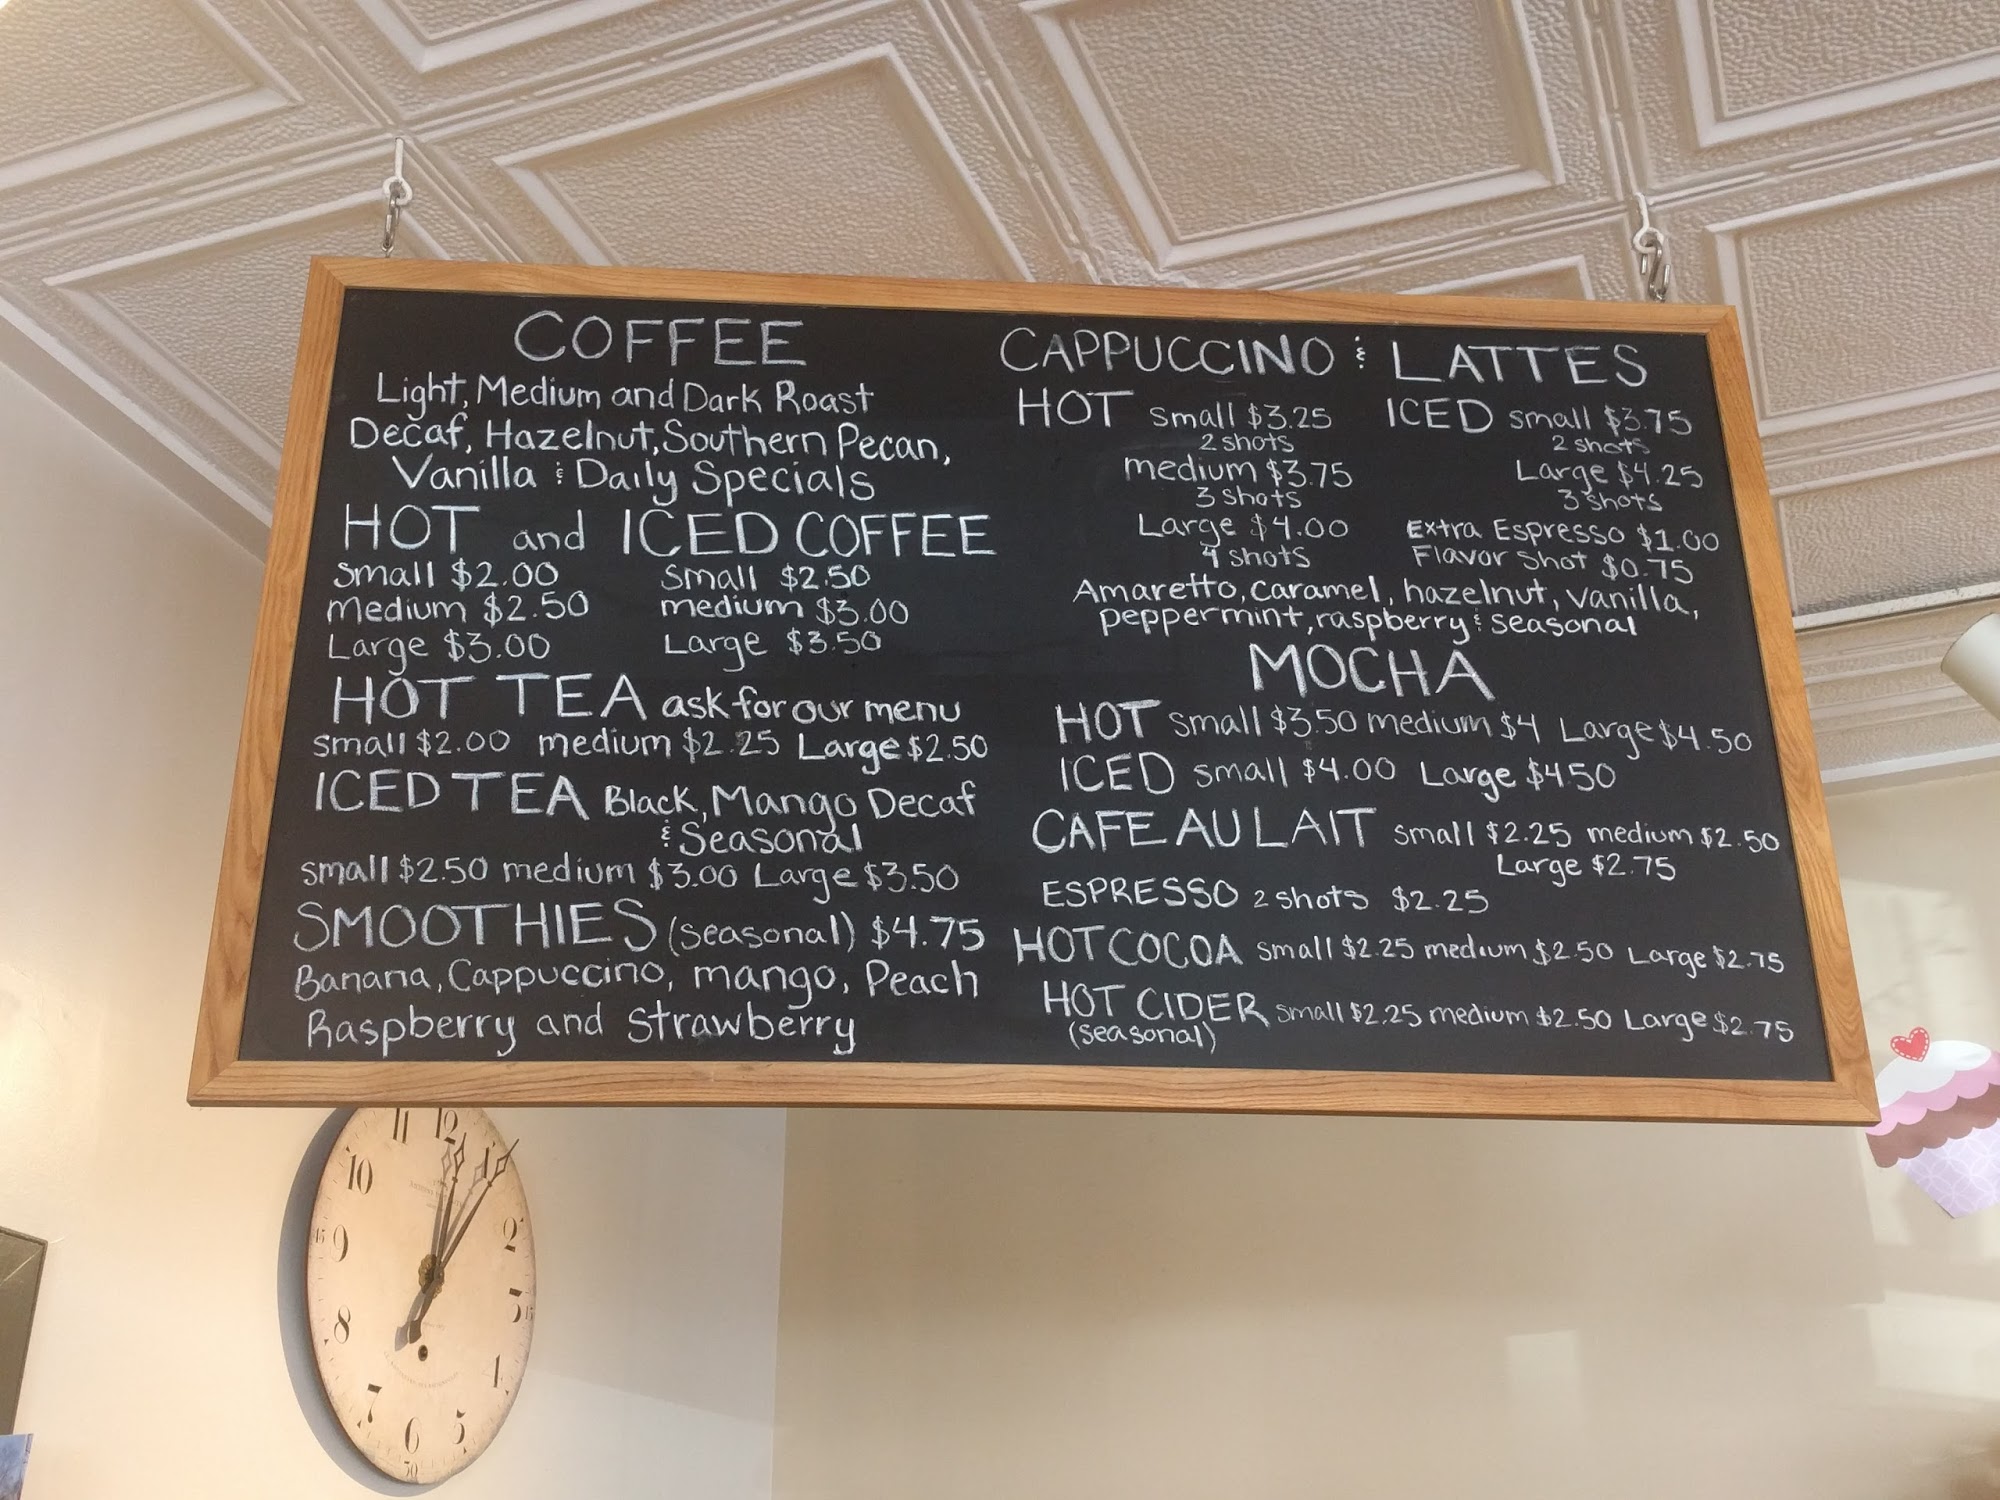 COFFEE
Light, Medium and Dark Roast
Decaf, Hazelnut, Southern Pecan,
Vanilla & Daily Specials
HOT and ICED COFFEE
Small $2.00 Small $2.50
medium $2.50 medium $3.00
Large $3.00 Large $3.50
HOT TEA ask for our menu
small $2.00 medium $2.25 Large $2.50
ICED TEA Black, Mango Decaf
& Seasonal
small $2.50 medium $3.00 Large $3.50
SMOOTHIES (seasonal) $4.75
Banana, Cappuccino, mango, Peach
Raspberry and Strawberry
CAPPUCCINO & LATTES
HOT small $3.25 ICED small $3.75
2 shots 2 shots
medium $3.75 Large $4.25
3 shots 3 shots
Large $4.00 Extra Espresso $1.00
4 shots Flavor Shot $0.75
Amaretto, caramel, hazelnut, vanilla,
peppermint, raspberry & seasonal
MOCHA
HOT small $3.50 medium $4 Large $4.50
ICED small $4.00 Large $4.50
CAFE AU LAIT small $2.25 medium $2.50
Large $2.75
ESPRESSO 2 shots $2.25
HOT COCOA small $2.25 medium $2.50 Large $2.75
HOT CIDER small $2.25 medium $2.50 Large $2.75
(seasonal)
11 12 1
10 2
9 3
8 4
7 6 5
30